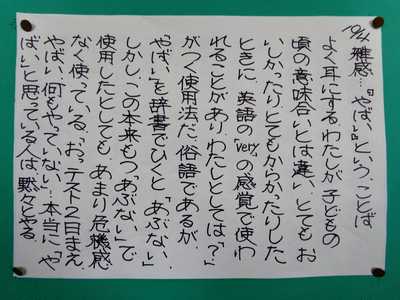 10/4 雑感…『やばい』という、ことば
よく耳にする。わたしが子どもの
頃の意味合いとは違い、とてもお
いしかったり、とてもからかったりした
ときに、英語の「very」の感覚で使わ
れることがあり、わたしとしては、「?」
がつく使用法だ。俗語であるが、
「やばい」を辞書でひくと「あぶない」
しかし、この本来もつ「あぶない」で
使用したとしても、あまり危機感
なく使っている。「おっ、テスト2日まえ、
やばい。何もやっていない…」本当に、「や
ばい」と思っている人は、黙々とやる。